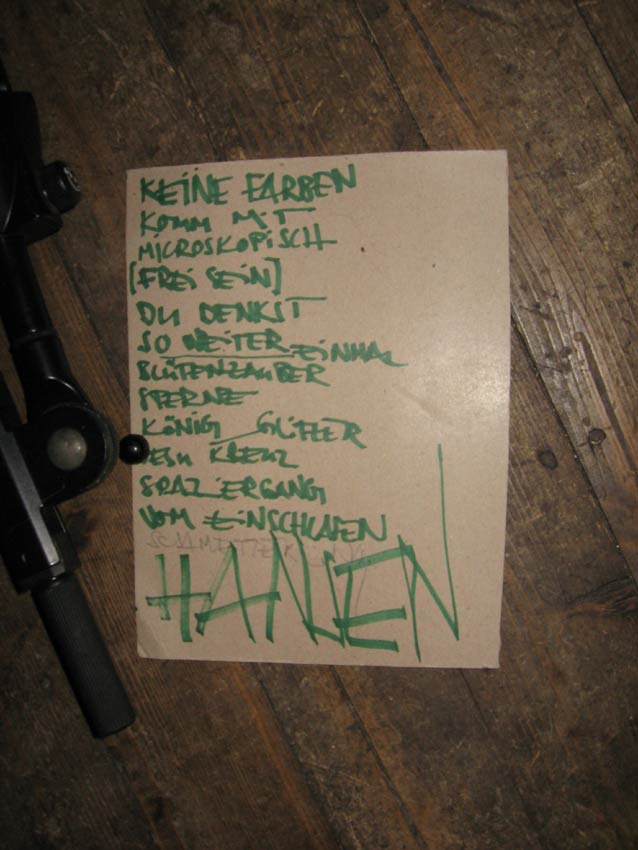 KEINE FARBEN
KOMM MIT
MICROSKOPISCH
[FREI SEIN]
DU DENKST
SO WEITER EINMAL
BLÜTENZAUBER
STERNE
KÖNIG
KREUZ
SPAZIERGANG
VOM EINSCHLAFEN